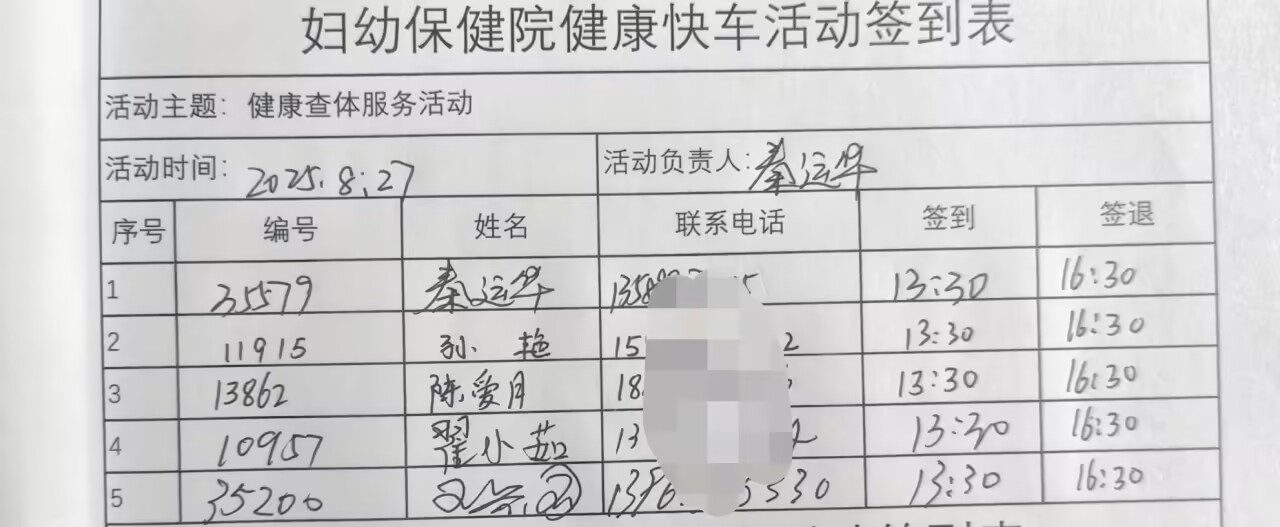 妇幼保健院健康快车活动签到表
活动主题：健康查体服务活动
活动时间：2025.8.27 活动负责人：秦运华
序号 编号 姓名 联系电话 签到 签退
1 35579 秦运华 13:30 16:30
2 11915 孙艳 15 2 13:30 16:30
3 13862 陈爱月 18 13:30 16:30
4 10957 翟小茹 13 2 13:30 16:30
5 35200 530 13:30 16:30